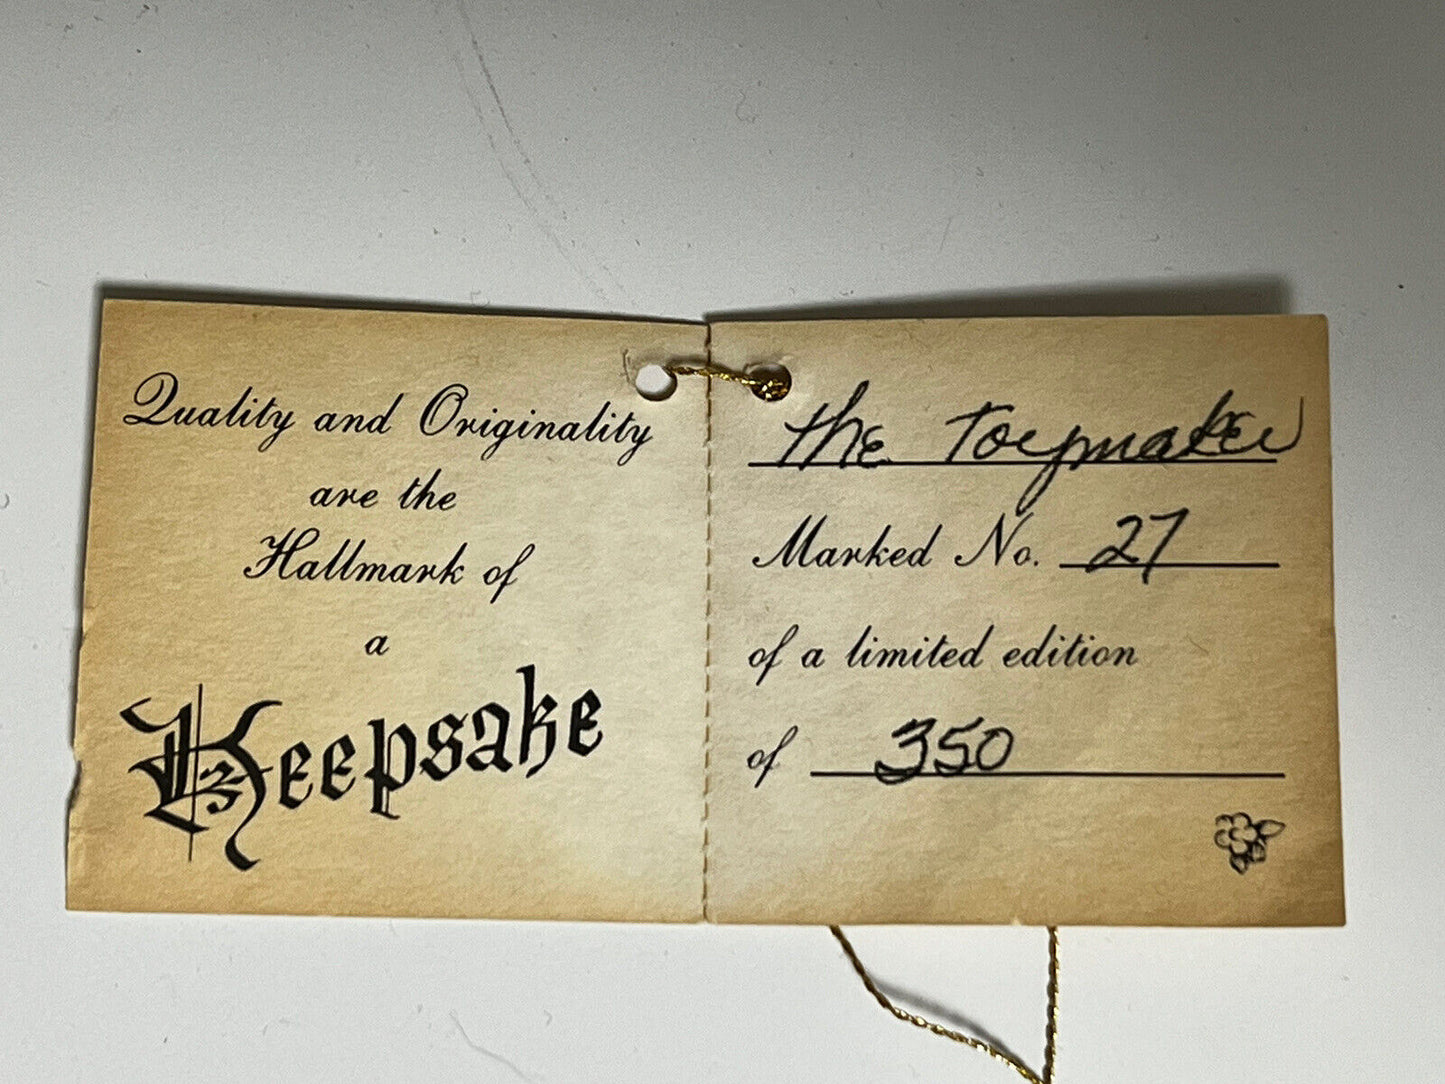 Quality and Originality
are the
Hallmark of
a
Keepsake
the Toymaker
Marked No. 27
of a limited edition
of 350